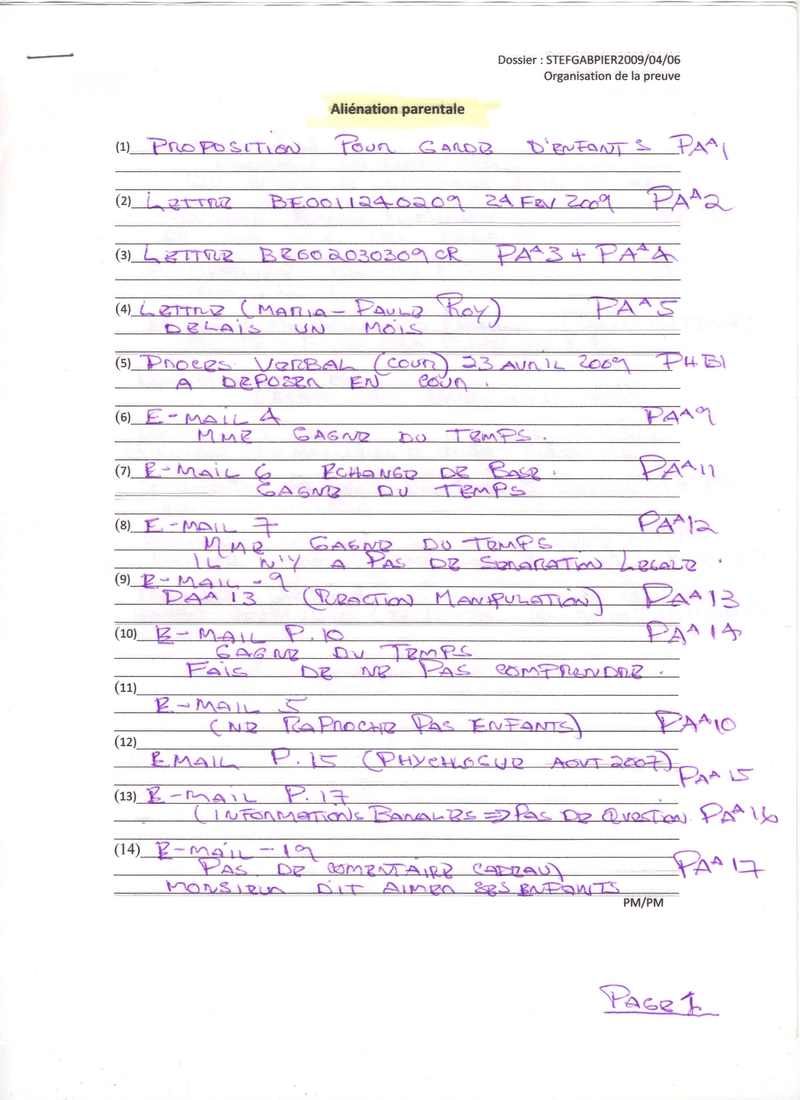 Dossier : STEFGABPIER2009/04/06
Organisation de la preuve
Aliénation parentale
(1) PROPOSITION POUR GARDE D'ENFANTS PAA1
(2) LETTRE BE0011240209 24 FEV 2009 PAA2
(3) LETTRE BR602030309CR PAA3 + PAA4
(4) LETTRE (MARIA-PAULE ROY) PAA5
DELAIS UN MOIS
(5) PROCES VERBAL (COUR) 23 AVRIL 2009 PHB1
A DEPOSER EN COUR.
(6) E-MAIL 4 PAA9
MME GAGNE DU TEMPS.
(7) E-MAIL 6 ECHANGE DE BASE. PAA11
GAGNE DU TEMPS
(8) E-MAIL 7 PAA12
MME GAGNE DU TEMPS
IL N'Y A PAS DE SEPARATION LEGALE.
(9) E-MAIL-9
PAA13 (REACTION MANIPULATION) PAA13
(10) E-MAIL P.10 PAA14
GAGNE DU TEMPS
FAIS DE NE PAS COMPRENDRE.
(11)
E-MAIL 5
(NE RAPROCHE PAS ENFANTS) PAA10
(12)
EMAIL P.15 (PHYCHLOGUE AOUT 2007)
PAA15
(13) E-MAIL P.17
(INFORMATIONS BANALES => PAS DE QUESTION PAA16
(14) E-MAIL-19
PAS DE COMENTAIRE CADEAU) PAA17
MONSIEUR DIT AIMER SES ENFANTS
PM/PM
PAGE 1